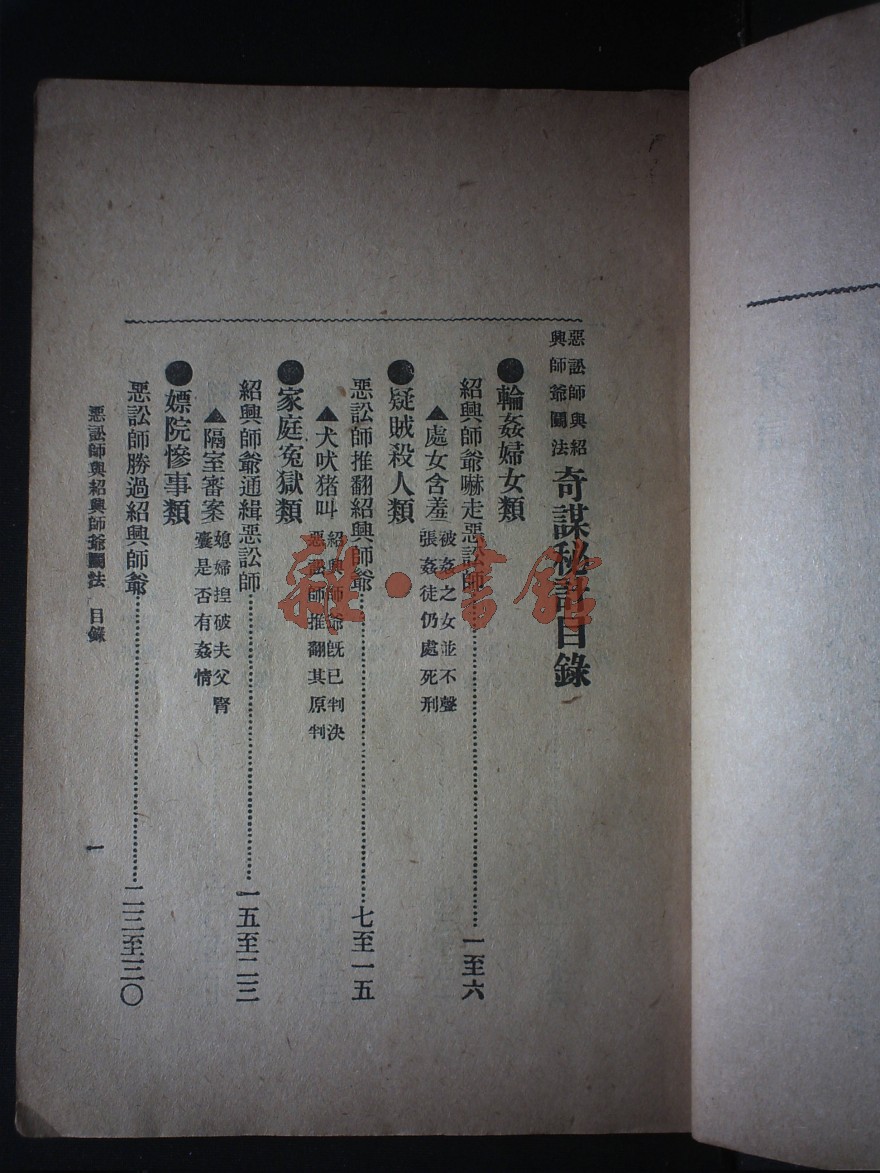 惡訟師與紹
興師爺鬭法
奇謀秘計目錄
●輪姦婦女類
紹興師爺嚇走惡訟師…………一至六
▲處女含羞
被姦之女並不聲
張姦徒仍處死刑
●疑賊殺人類
惡訟師推翻紹興師爺…………七至一五
▲犬吠猪叫
紹興師爺旣已判決
惡訟師推翻其原判
●家庭冤獄類
紹興師爺通緝惡訟師…………一五至二三
▲隔室審案
媳婦揑破夫父腎
囊是否有姦情
●嫖院慘事類
惡訟師勝過紹興師爺…………二三至三〇
惡訟師與紹興師爺鬭法 目錄
一
雜·書館